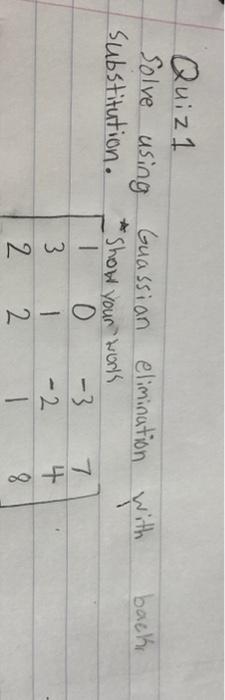 Quiz 1
Solve using Guassian elimination with back
substitution. *Show your work
1 0 -3 7
3 1 -2 4
2 2 1 8